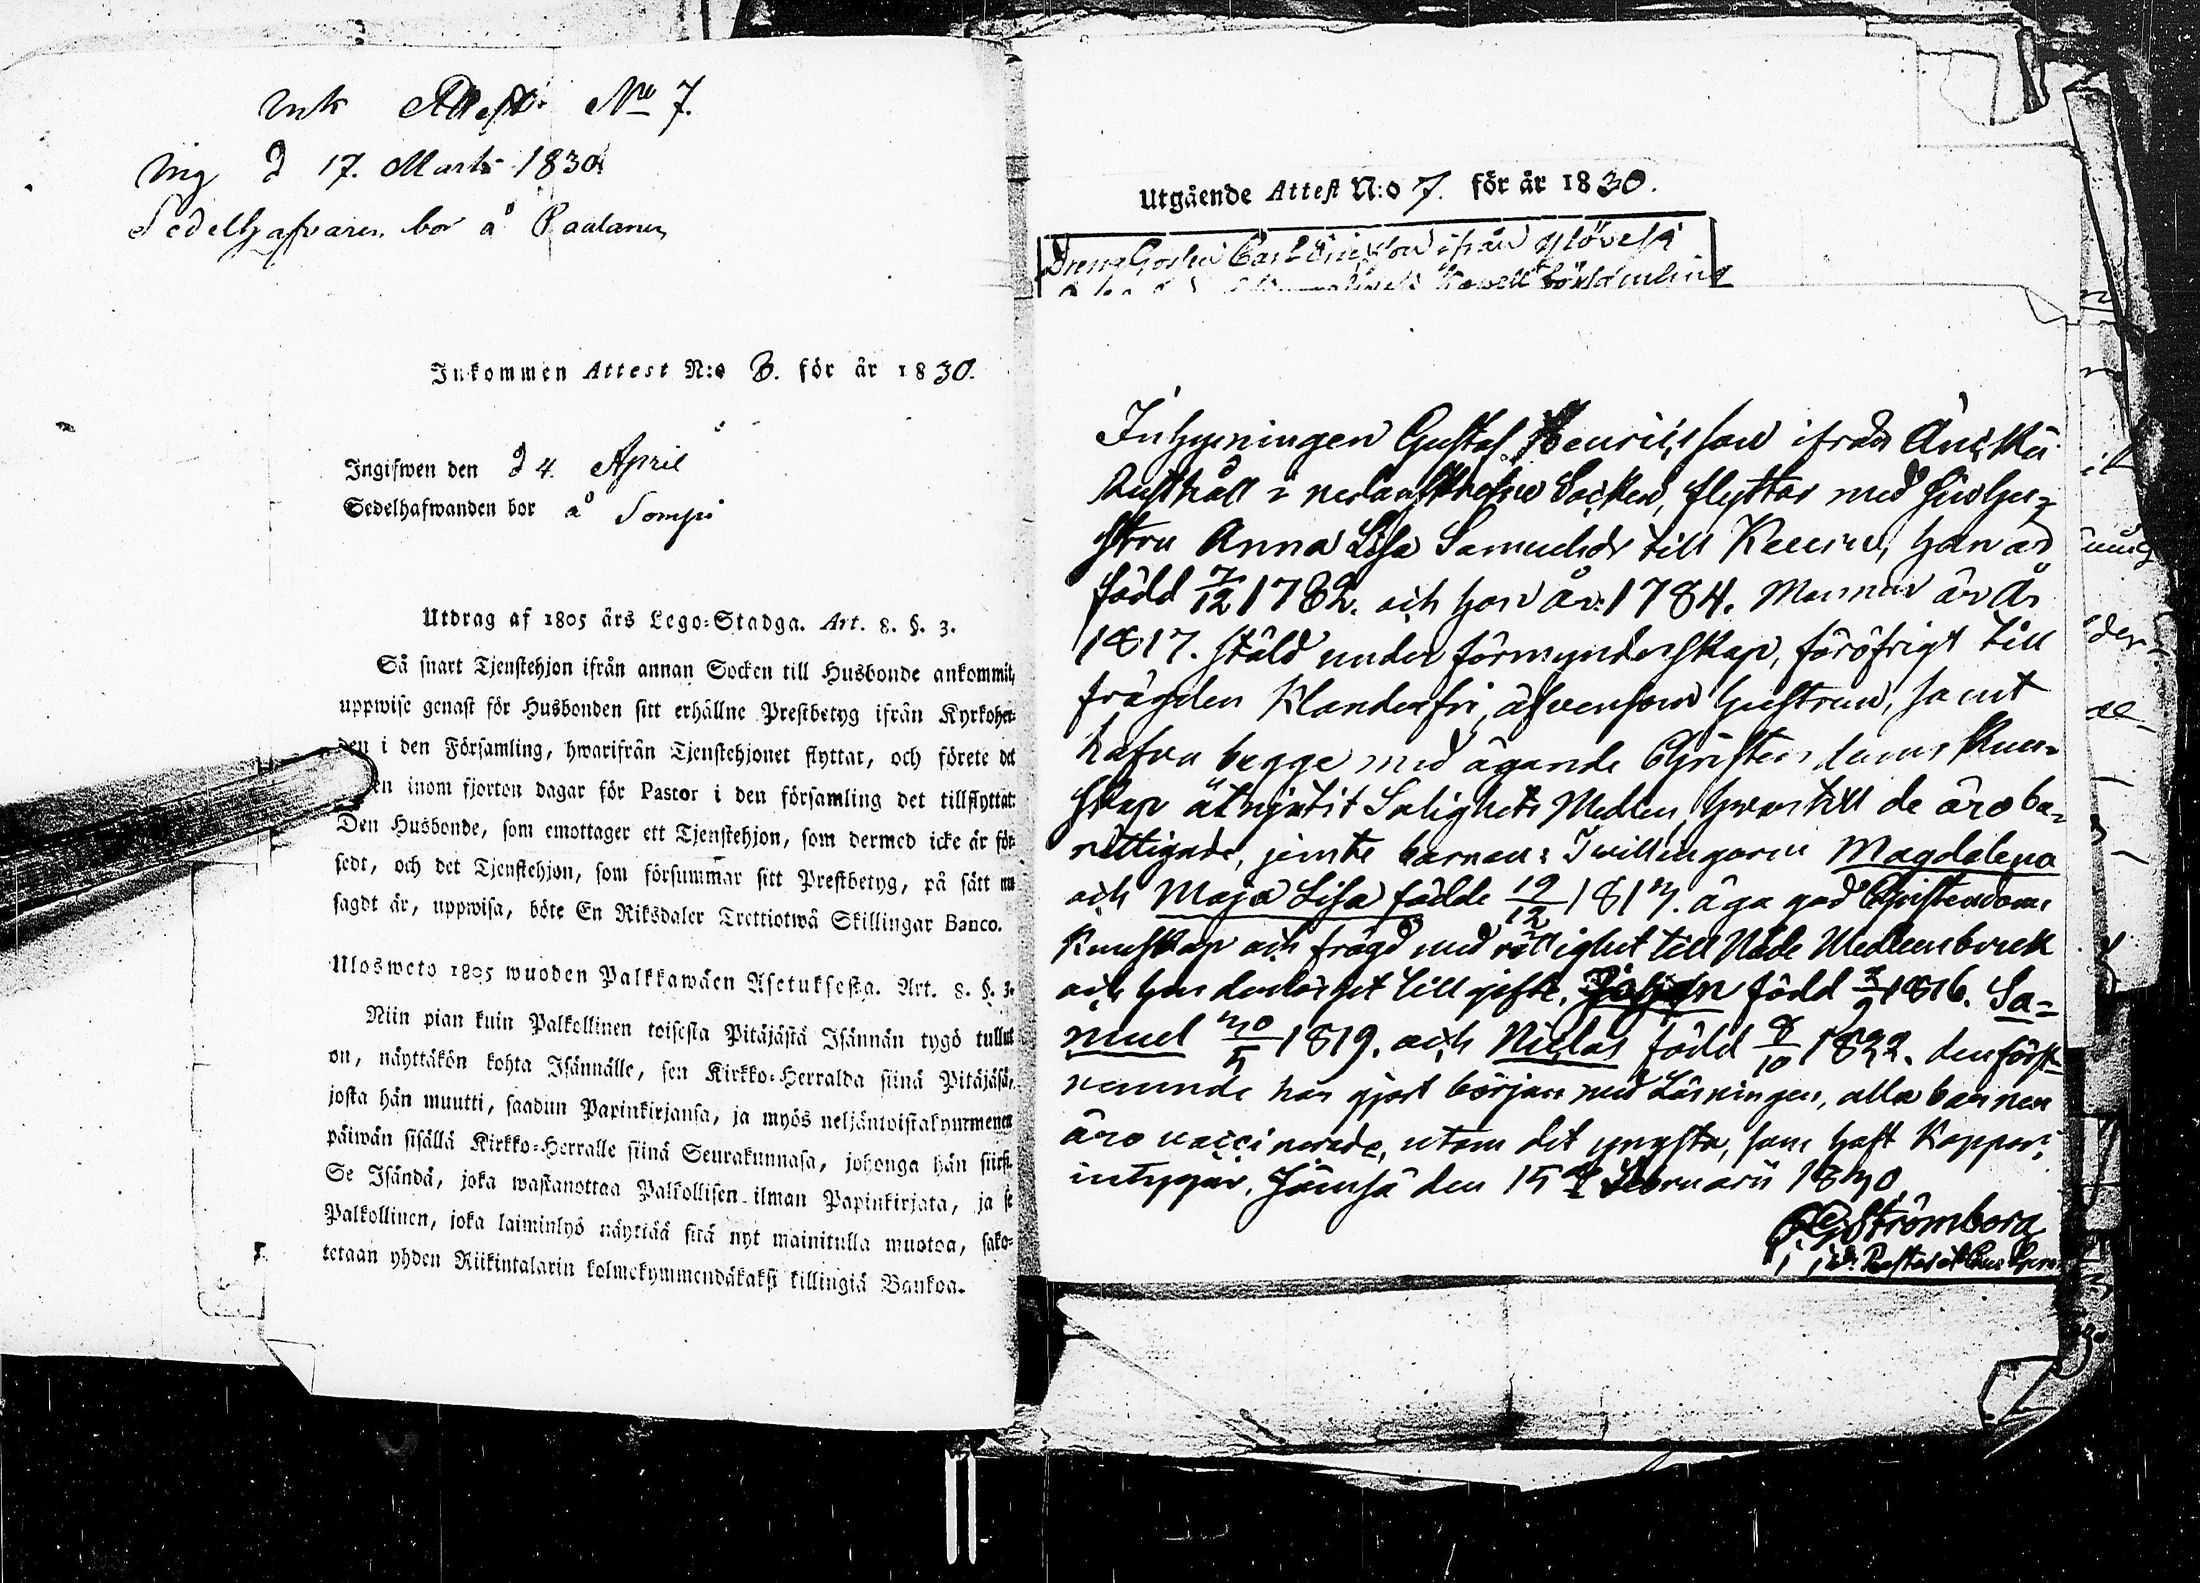 Ink Attest No 7.
Ing d 17. Marts 1830
Sedelhafvaren bor å Paalanen
Inkommen Attest N:o 8. för år 1830.
Ingifwen den d 4. April
Sedelhafwanden bor å Sompi
Utdrag af 1805 års Lego-Stadga. Art. 8. §. 3.
Så snart Tjenstehjon ifrån annan Socken till Husbonde ankommit,
uppwise genast för Husbonden sitt erhållne Prestbetyg ifrån Kyrkoher-
den i den Församling, hwarifrån Tjenstehjonet flyttat, och förete det
en inom fjorton dagar för Pastor i den församling det tillflyttat.
Den Husbonde, som emottager ett Tjenstehjon, som dermed icke är för-
sedt, och det Tjenstehjon, som försummar sitt Prestbetyg, på sätt nu
sagdt är, uppwisa, böte En Riksdaler Trettiotwå Skillingar Banco.
Ulosweto 1805 wuoden Palkkawäen Asetuksesta. Art. 8. §. 3.
Niin pian kuin Palkollinen toisesta Pitäjästä Isännän tygö tullut
on, näyttäkön kohta Isännälle, sen Kirkko-Herralda siinä Pitäjäsä,
josta hän muutti, saadun Papinkirjansa, ja myös neljäntoistakymmenen
päiwän sisällä Kirkko-Herralle siinä Seurakunnasa, johonga hän siirsi.
Se Isändä, joka wastanottaa Palkollisen ilman Papinkirjata, ja se
Palkollinen, joka laiminlyö näyttää sitä nyt mainitulla muotoa, sako-
tetaan yhden Riikintalarin kolmekymmendäkaksi killingiä Bankoa.
Utgående Attest N:o 7. för år 1830.
Dreng Gossen Carl Ericsson ifrån
Inhysningen Gustaf Henricsson ifrån
Rusthåll i nedanskrefne Socken, flyttar med sin Hu-
stru Anna Lisa Samuelsdr till Keuru, han är
född 7/12 1782. och hon år 1784. Mannen är år
1817. stäld under förmynderskap, föröfrigt till
frägden klanderfri, äfvensom hustrun, samt
hafva begge med ägande Christendoms kun-
skap åtnjutit Salighets Medlen, hvartill de äro be-
rättigade, jemte barnen: Tvillingarne Magdalena
och Maja Lisa födde 19/12 1813. äga god Christendoms
kunskap och frägd med rättighet till Nåde Medlens bruk
och hinderlöshet till gifte. Johan född 3/9 1816. Sa-
muel 30/5 1819. och Niclas född 9/10 1822. den först-
nemnde har gjort början med Läsningen, alla barnen
äro vaccinerade, utom det yngsta, som haft Koppor;
intygar. Jämsä den 15de Februarii 1830
Strömborg